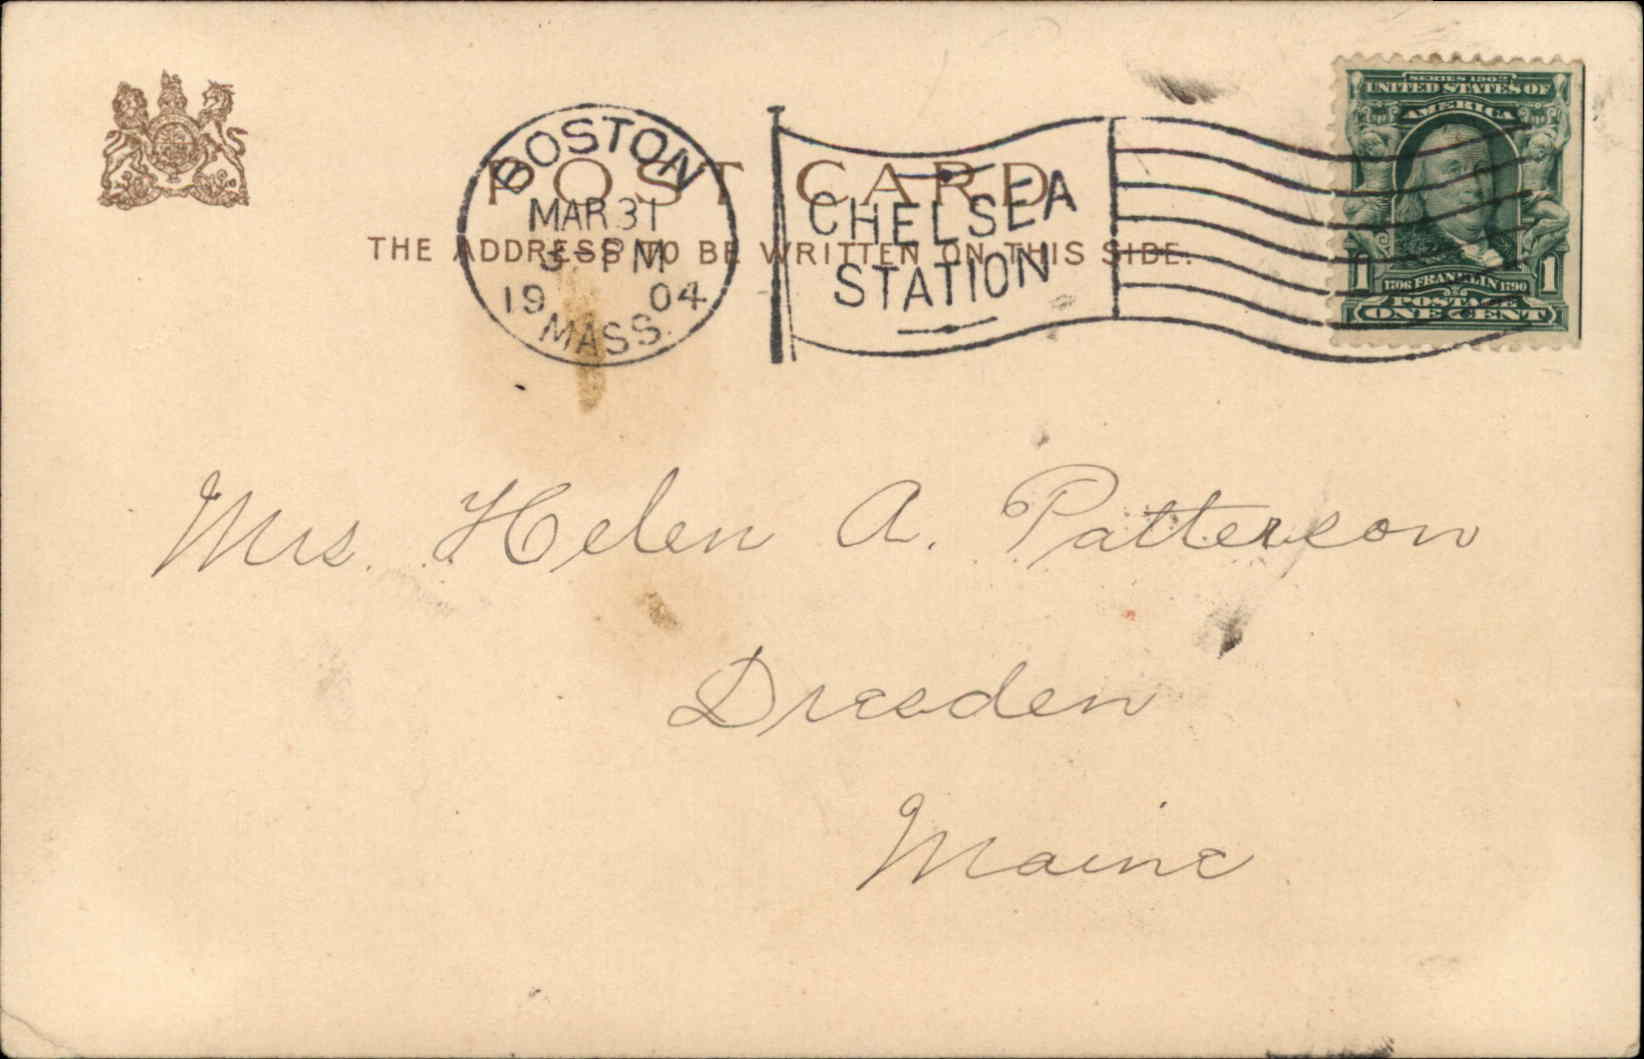 POST CARD
THE ADDRESS TO BE WRITTEN ON THIS SIDE.
BOSTON
MAR 31
3-PM
19 04
MASS.
CHELSEA
STATION
SERIES 1902
UNITED STATES OF
AMERICA
1 1706 FRANKLIN 1790 1
POSTAGE
ONE CENT
Mrs. Helen A. Patterson
Dresden
Maine